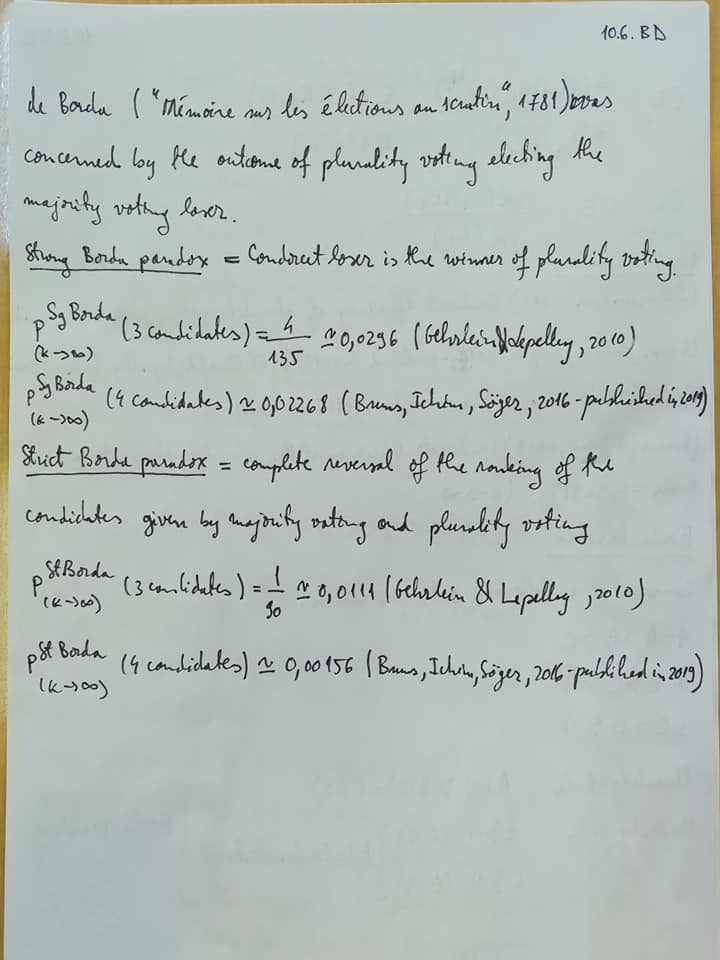 10.6. BD
de Borda ("Mémoire sur les élections au scrutin", 1781) was
concerned by the outcome of plurality voting electing the
majority voting loser.
Strong Borda paradox = Condorcet loser is the winner of plurality voting.
P^SgBorda (k→∞) (3 candidates) = 4/135 ≃ 0,0296 (Gehrlein & Lepelley, 2010)
P^SgBorda (k→∞) (4 candidates) ≃ 0,02268 (Bruns, Ichim, Söger, 2016 - published in 2019)
Strict Borda paradox = complete reversal of the ranking of the
candidates given by majority voting and plurality voting
P^StBorda (k→∞) (3 candidates) = 1/90 ≃ 0,0111 (Gehrlein & Lepelley, 2010)
P^StBorda (k→∞) (4 candidates) ≃ 0,00156 (Bruns, Ichim, Söger, 2016 - published in 2019)